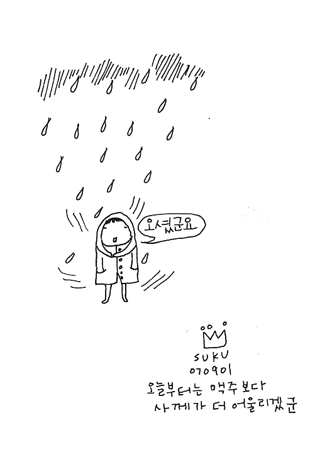 오셨군요
SUKU
070901
오늘부터는 맥주보다
사께가 더 어울리겠군